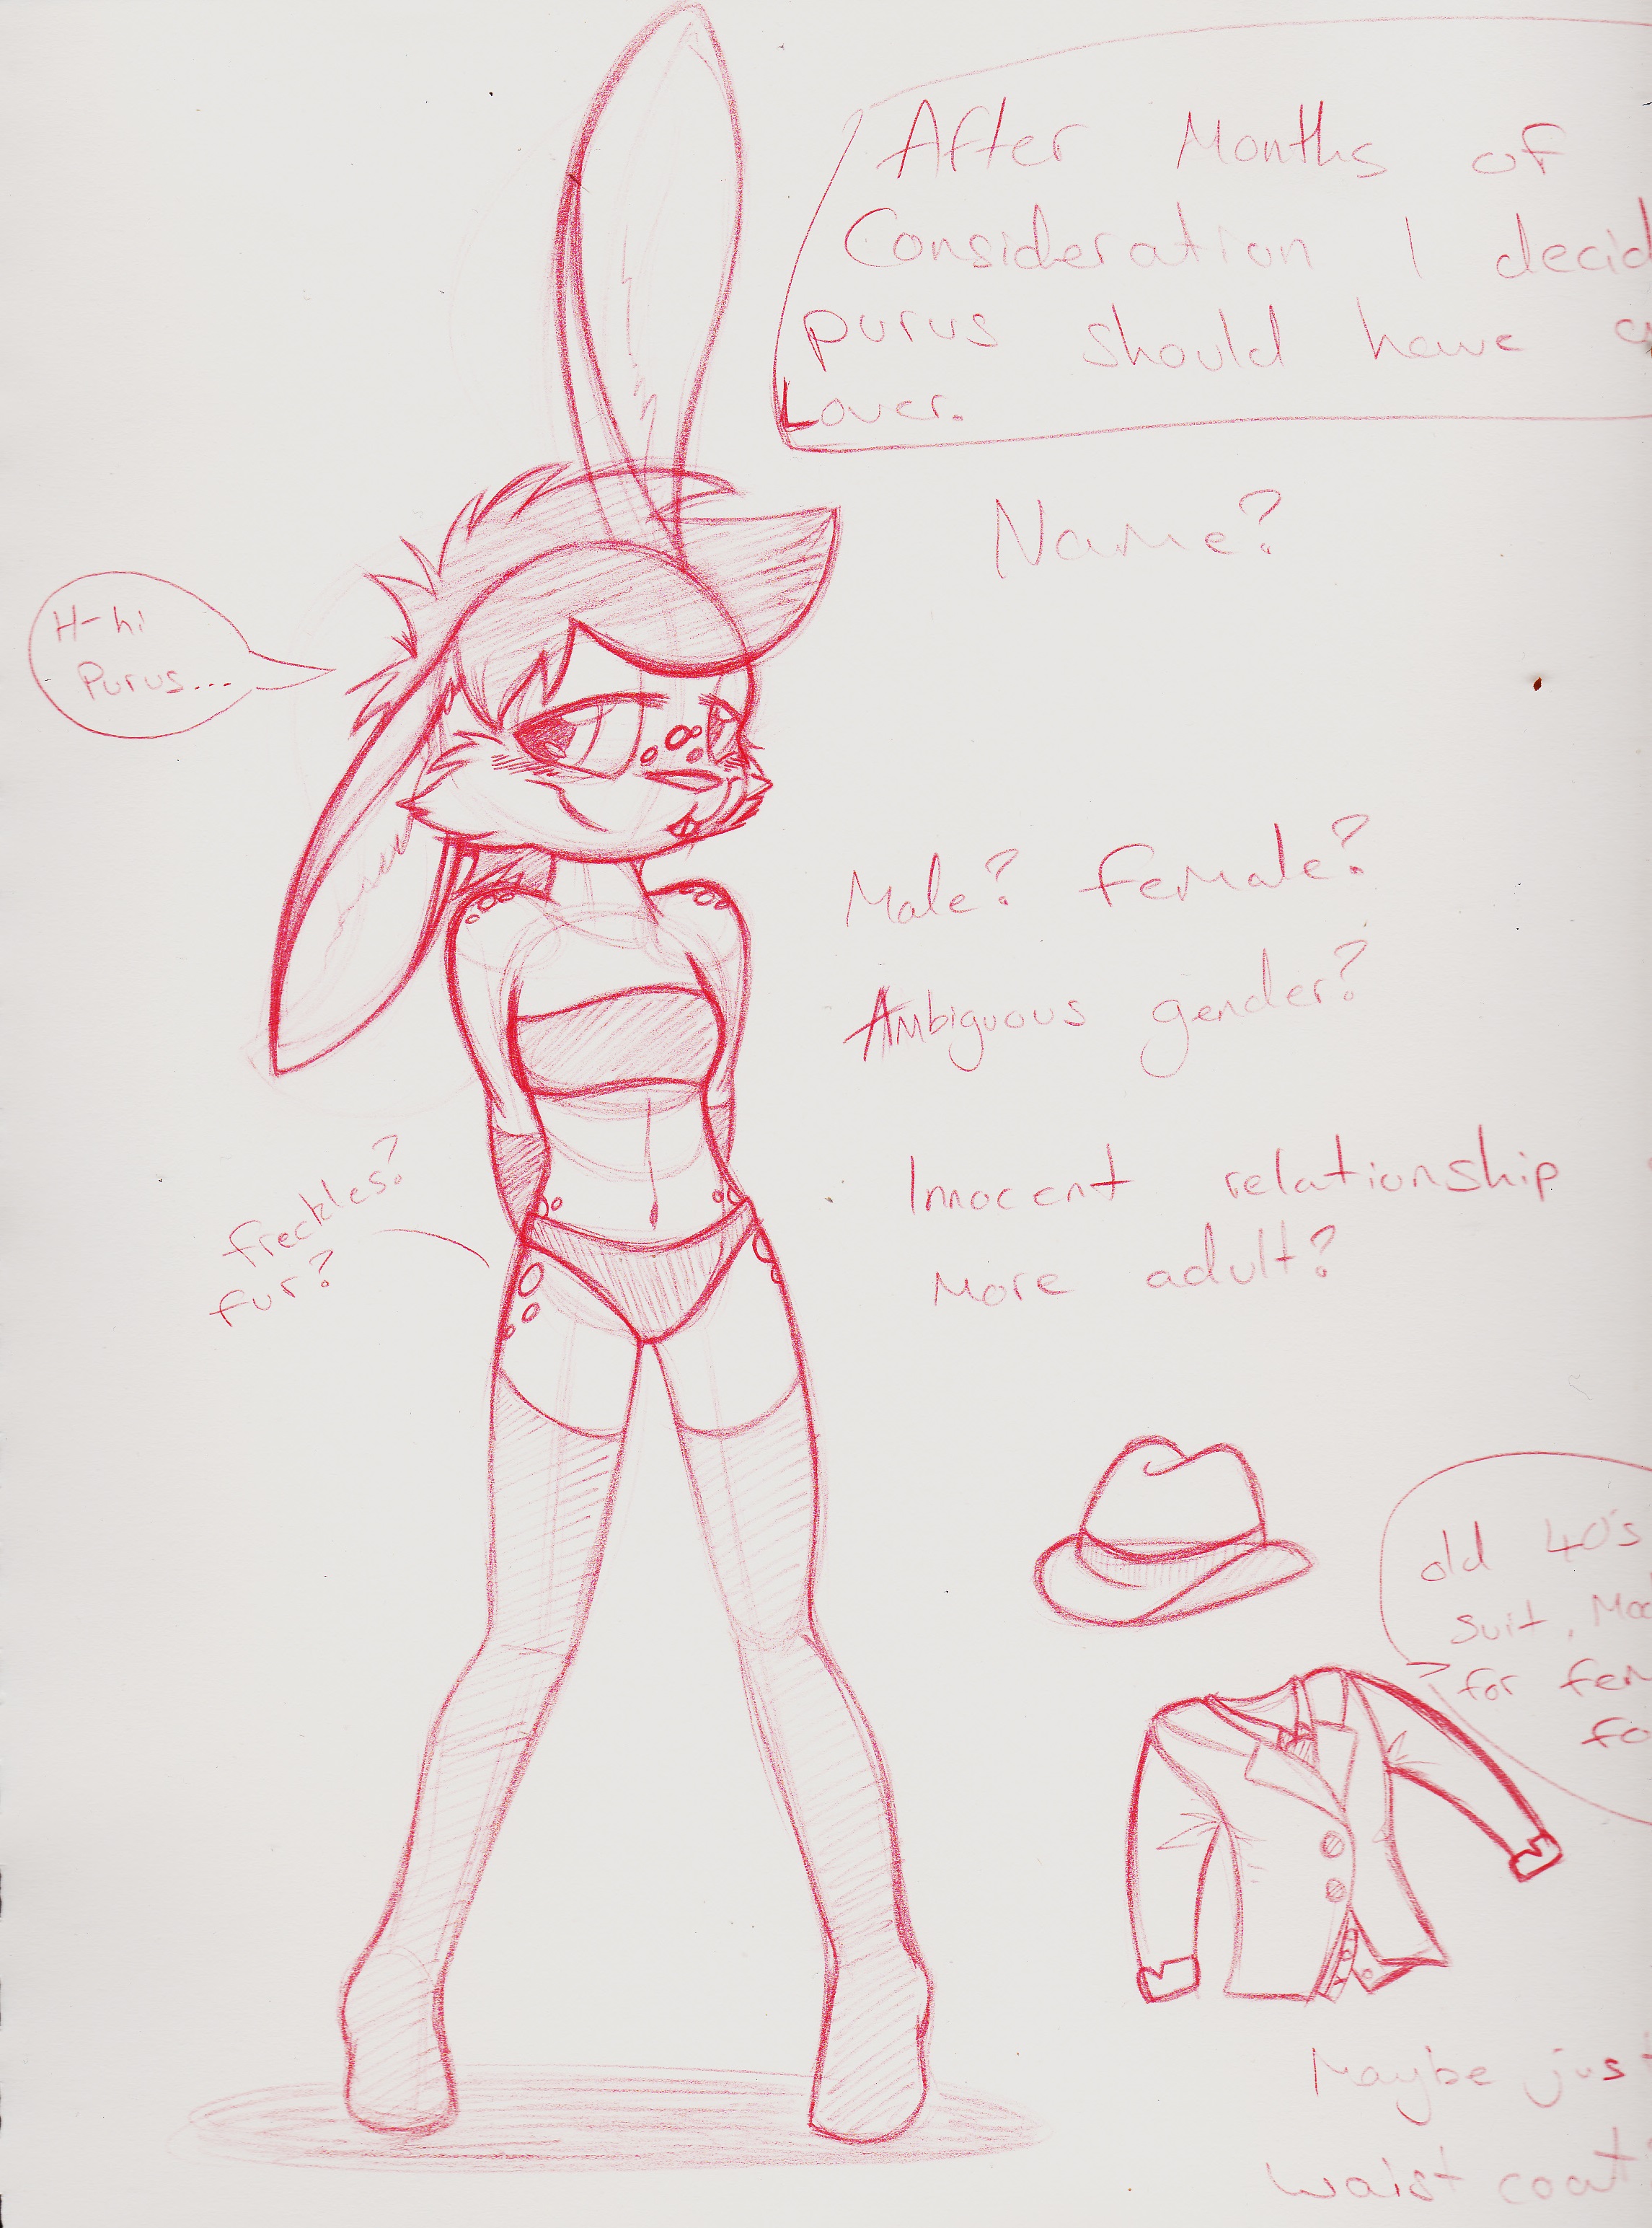 After Months of
Consideration I decid
purus should have a
Lover.
Name?
H-hi
Purus...
Male? female?
Ambiguous gender?
Innocent relationship
More adult?
freckles?
fur?
old 40's
suit, Mod
for fem
fo
Maybe just
waist coat